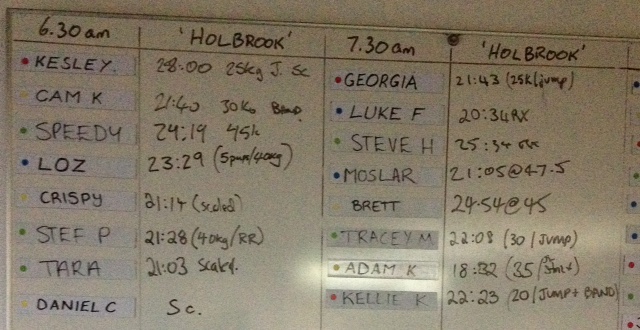 6.30am 'HOLBROOK' 7.30am 'HOLBROOK'
KESLEY. 28:00 25kg J. Sc
CAM K 21:40 30kg BAND
SPEEDY 24:19 45k
LOZ 23:29 (5pun/40kg)
CRISPY 21:14 (scaled)
STEF P 21:28 (40kg/RR)
TARA 21:03 Scaled.
DANIEL C Sc.
GEORGIA 21:43 (25k/jump)
LUKE F 20:34 RX
STEVE H 25:34
MOSLAR 21:05@47.5
BRETT 24:54@45
TRACEY M 22:08 (30/JUMP)
ADAM K 18:32 (35/
KELLIE K 22:23 (20/JUMP+BAND)